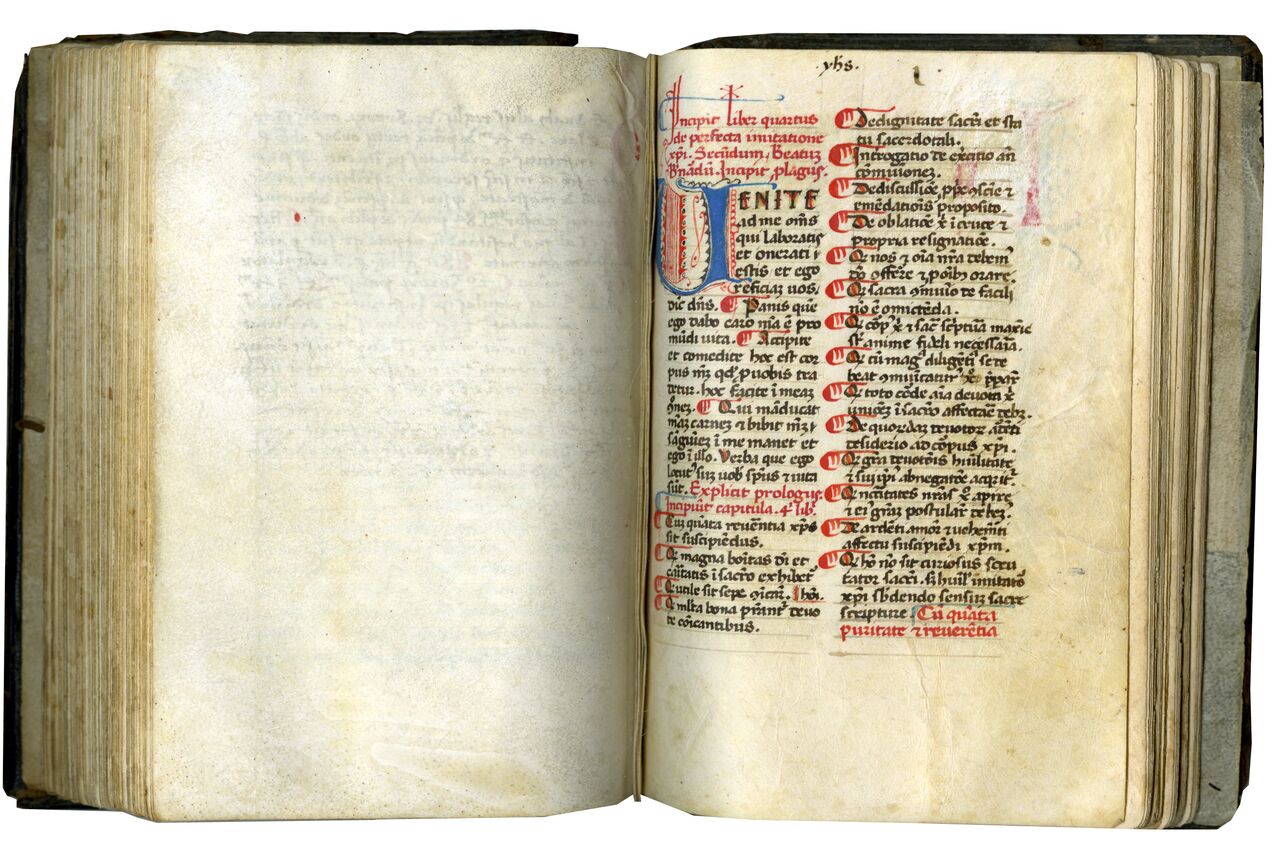 yhs.
Incipit liber quartus
de perfecta imitatione
xpi. Secundum. Beatuz
B'nadū. Incipit, plagus.
VENITE
ad me om̄s
qui laboratis
et onerati
estis et ego
reficiaz uos.
dic̄ dn̄s. Panis quē
ego dabo caro m̄a ē pro
mūdi uita. Accipite
et comedite hoc est cor
pus m̄z qd̓ p uobis tra
detur. hoc facite ī meaz
Qui māducat
māz carnez ⁊ bibit m̄z
sāguinez ī me manet et
ego ī illo. Verba que ego
locut' suz uob̄ spūs ⁊ uita
sūt. Explicit prologus.
Incipiūt capitula. 4ⁱ lib̓.
Cū quāta reuēntia xp̄s
sit suscipiēdus.
Q magna boītas dī et
cāitatis ī sacrō exhibet̄
Q utile sit sepe
Q ml̄ta bona p̄rant̄ deuo
te cōicantibus.
De dignitate sacrī et sta
tu sacerdotali.
Introgatio de ex̄citio añ
cōīuionez.
De discussiōe ⁊
emēdatiōīs proposito.
De oblatiōe x̄ ī cruce ⁊
propria resignatiōe.
Q nos ⁊ oīa nr̄a debem'
offerre ⁊ p oīb; orare.
Q sacra 9muīo de facili
nō ē omictēda.
Q corp' x̄ ⁊ sac̄ sc̄ptura maxīe
st̄ anime fideli necessaīa.
Q cū mag̓ diligētī se de
beat
Q toto corde aīa deuota x̄
ī sacrō affectāe debz.
De quordaz deuotor̄ ardētī
desiderio ad corpus xpi.
Q gr̄a deuotōnis hūilitate
⁊ sui ipi' abnegatōe acqrit̄.
Q nc̄itates nr̄as x̄o apire
⁊ ei' gr̄az postulare debez.
De ardēti amor̄ ⁊ uehemēti
affectu suscipiēdi xpm.
Q hō nō sit curiosus scru
tator sacrī. S; huīl' imitator̄
xpi sb̄dendo sensuz sacre
scripture. Cū quāta
puritate ⁊ reuerētia